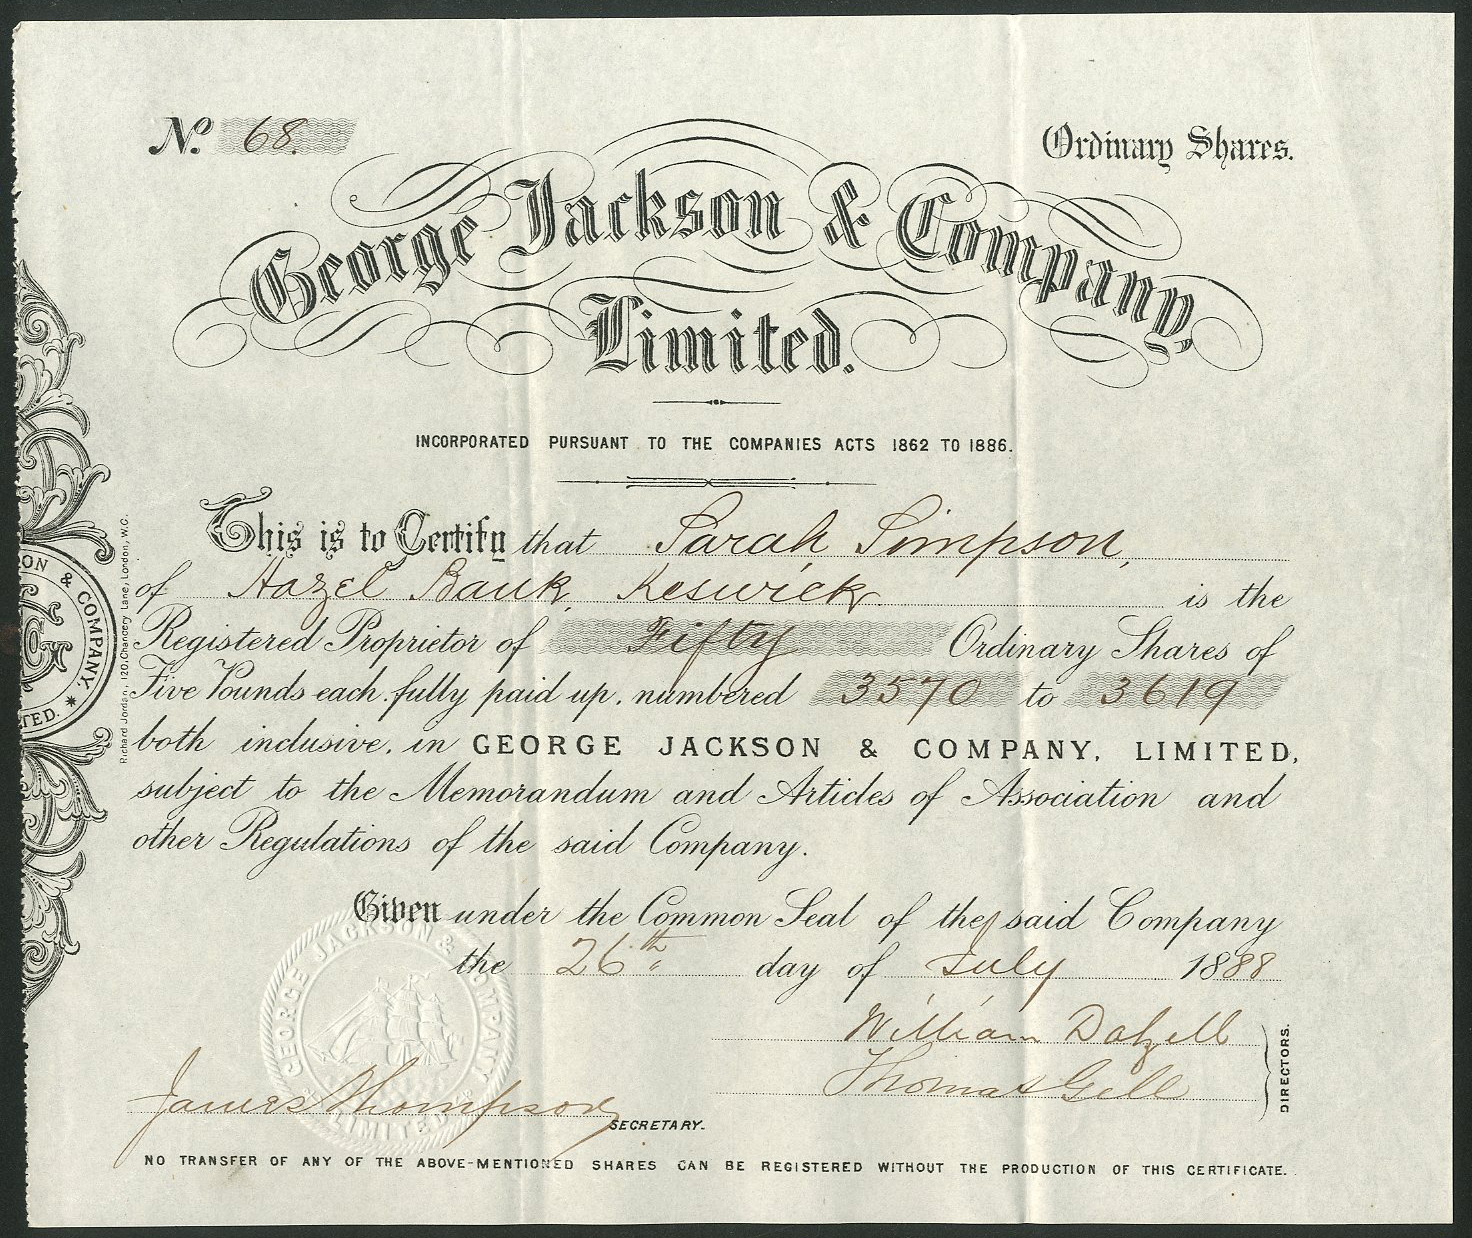 No. 68.
Ordinary Shares.
George Jackson & Company,
Limited.
INCORPORATED PURSUANT TO THE COMPANIES ACTS 1862 TO 1886.
This is to Certify that Sarah Simpson,
of Hazel Bank, Keswick is the
Registered Proprietor of Fifty Ordinary Shares of
Five Pounds each, fully paid up, numbered 3570 to 3619
both inclusive, in GEORGE JACKSON & COMPANY, LIMITED,
subject to the Memorandum and Articles of Association and
other Regulations of the said Company.
Given under the Common Seal of the said Company
the 26th day of July 1888
William Dalzell
Thomas Gill
DIRECTORS.
James Thompson
SECRETARY.
NO TRANSFER OF ANY OF THE ABOVE-MENTIONED SHARES CAN BE REGISTERED WITHOUT THE PRODUCTION OF THIS CERTIFICATE.
GEORGE JACKSON & COMPANY LIMITED
ON & COMPANY, TED.
Richard Jordan, 120, Chancery Lane, London, W.C.